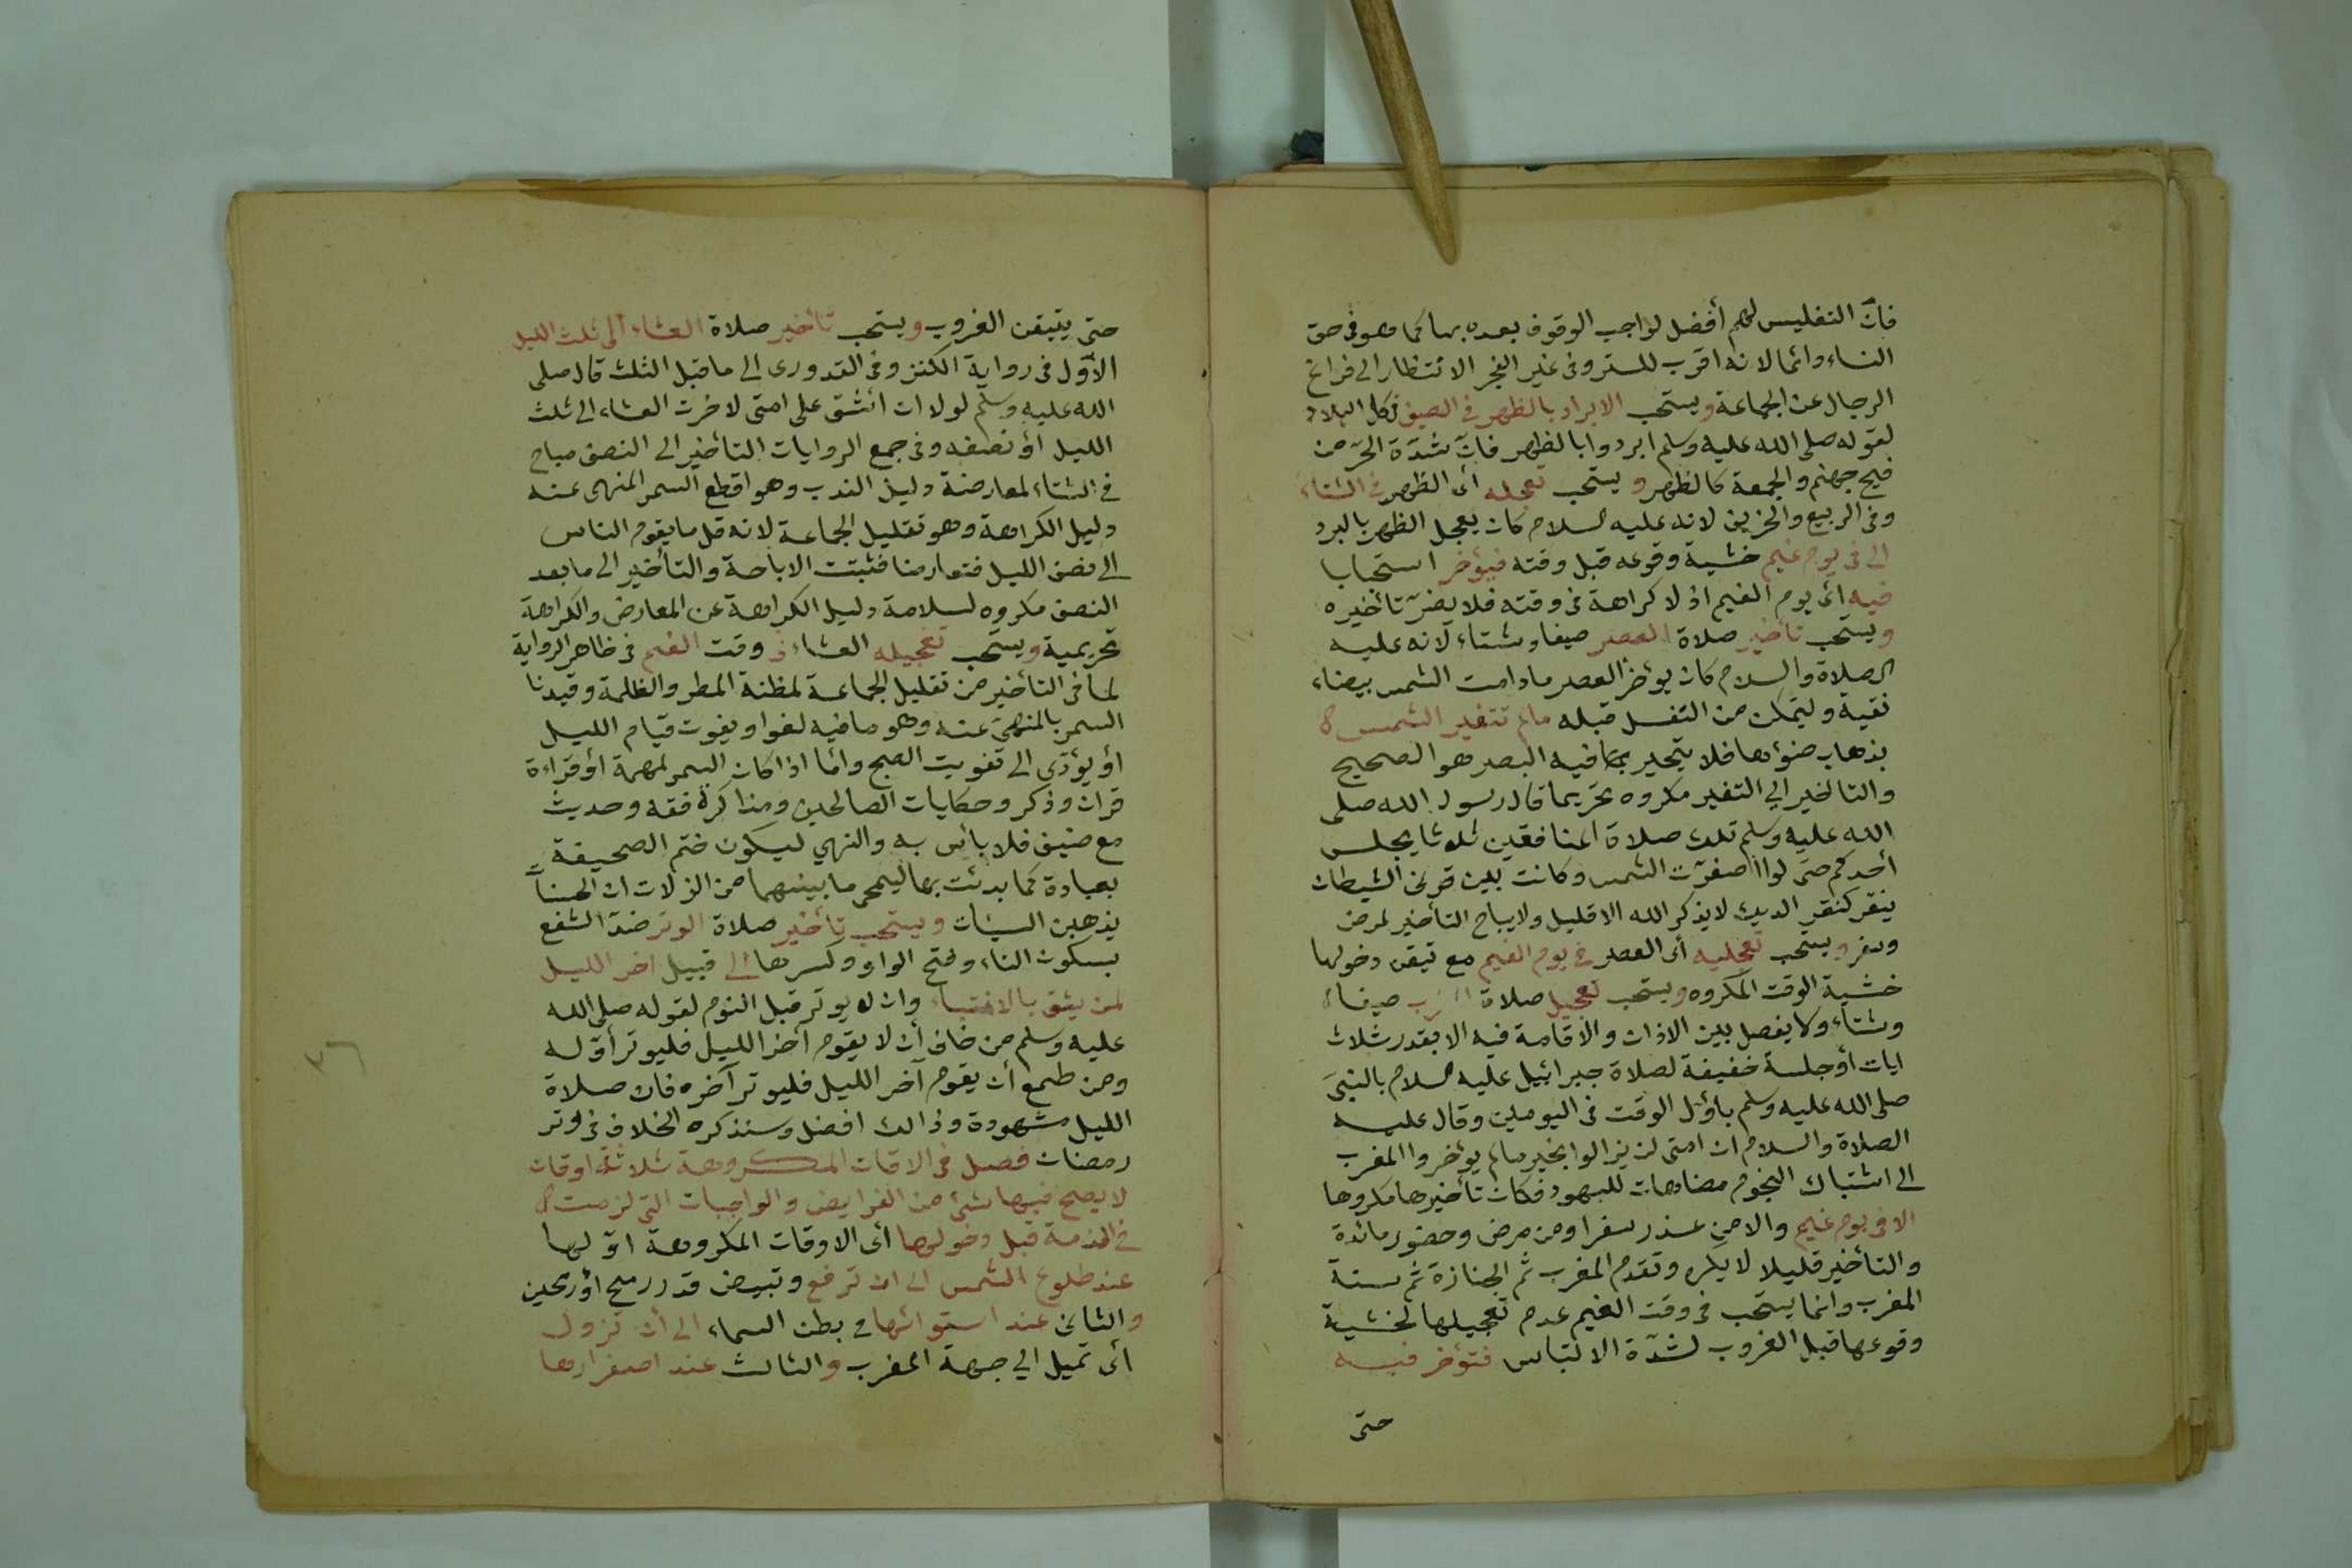 فانّ التغليس لهم أفضل لواجب الوقوف بعده بها كما هو فى حق
النساء دائما لانه اقرب للستر وفى غير الفجر الانتظار الى فراغ
الرجال عن الجماعة ويستحب الابراد بالظهر فى الصيف فى كل البلاد
لقوله صلى الله عليه وسلم ابردوا بالظهر فانّ شدّة الحرّ من
فيح جهنم والجمعة كالظهر ويستحب تعجيله أى الظهر فى الشتاء
وفى الربيع والخريف لانه عليه السلام كان يعجل الظهر بالبرد
الا فى يوم غيم خشية وقوعه قبل وقته فيؤخر استحبابا
فيه أى يوم الغيم اذ لا كراهة فى وقته فلا يضرّ تأخيره
ويستحب تأخير صلاة العصر صيفا وشتاء لانه عليه
الصلاة والسلام كان يؤخر العصر مادامت الشمس بيضاء
نقية وليتمكن من التنفل قبله مالم تتغير الشمس
بذهاب ضوئها فلا يتحير بها فيه البصر هو الصحيح
والتاخير الي التغير مكروه تحريما قال رسول الله صلى
الله عليه وسلم تلك صلاة المنافقين ثلاثا يجلس
أحدكم حتى لو اصفرّت الشمس وكانت بين قرنى الشيطان
ينقر كنقر الديك لايذكر الله الا قليل ولايباح التأخير لمرض
وسفر ويستحب تعجليه أى العصر فى يوم الغيم مع تيقن دخولها
خشية الوقت المكروه ويستحب تعجيل صلاة المغرب صيفا
وشتاء ولا يفصل بين الاذان والاقامة فيه الا بقدر ثلاث
ايات أوجلسة خفيفة لصلاة جبرائيل عليه السلام بالنبىَ
صلى الله عليه وسلم باوّل الوقت فى اليومين وقال عليه
الصلاة والسلام ان امتى لن يزالوا بخير مالم يؤخروا المغرب
الى اشتباك النجوم مضاهات لليهود فكان تأخيرها مكروها
الا فى يوم غيم والا من عذر سفر اومن مرض وحضور مائدة
والتأخير قليلا لا يكره وتقدم المغرب ثم الجنازة ثم سنة
المغرب وانما يستحب فى وقت الغيم عدم تعجيلها لخشية
وقوعها قبل الغروب لشدّة الالتباس فتؤخر فيه
حتى
حتى يتيقن الغروب ويستحب تأخير صلاة العشاء الى ثلث الليل
الاوّل فى رواية الكنز وفى القدورى الى ماقبل الثلث قال صلى
الله عليه وسلم لولا ان أشق على امتى لاخرت العشاء الى ثلث
الليل أو نصفه وفى جمع الروايات التأخير الى النصف مباح
فى الشتاء لمعارضة دليل الندب وهو اقطع السمر المنهى عنه
دليل الكراهة وهو تقليل الجماعة لانه قل مايقوم الناس
الى نصف الليل فتعارضا فثبتت الاباحة والتأخير الى مابعد
النصف مكروه لسلامة دليل الكراهة عن المعارض والكراهة
تحريمية ويستحب تعجيله العشاء فى وقت الغيم فى ظاهر الرواية
لما فى التأخير من تقليل الجماعة لمظنة المطر والظلمة وقيدنا
السمر بالمنهى عنه وهو مافيه لغو او يفوت قيام الليل
أو يؤدّى الى تفويت الصبح وامّا اذا كان السمر لمهمة أوقراءة
قران وذكر وحكايات الصالحين ومذاكرة فقه وحديث
مع ضيف فلا بأس به والنهي ليكون ختم الصحيفة
بعبادة كما بدئت بها ليمحى مابينهما من الزلات ان الحسنات
يذهبن السيئات ويستحب تأخير صلاة الوتر ضدّ الشفع
بسكون التاء وفتح الواو وكسرها الى قبيل اخر الليل
لمن يثق بالانتباه وان لا يوتر قبل النوم لقوله صلى الله
عليه وسلم من خاف أن لا يقوم آخر الليل فليوتر أوّله
ومن طمع أن يقوم آخر الليل فليوتر آخره فان صلاة
الليل مشهودة وذالك افضل وسنذكره الخلاف فى وتر
رمضان فصل فى الاقات المكروهة ثلاثة اوقات
لا يصح فيها شئ من الفرايض والواجبات التى لزمت
فى الذمة قبل دخولها أى الاوقات المكروهة اوّلها
عند طلوع الشمس الى ان ترفع وتبيض قدر رمح أو رمحين
والثانى عند استوائها فى بطن السماء الى أن تزول
أى تميل الي جهة المغرب والثالث عند اصفرارها
٣٦